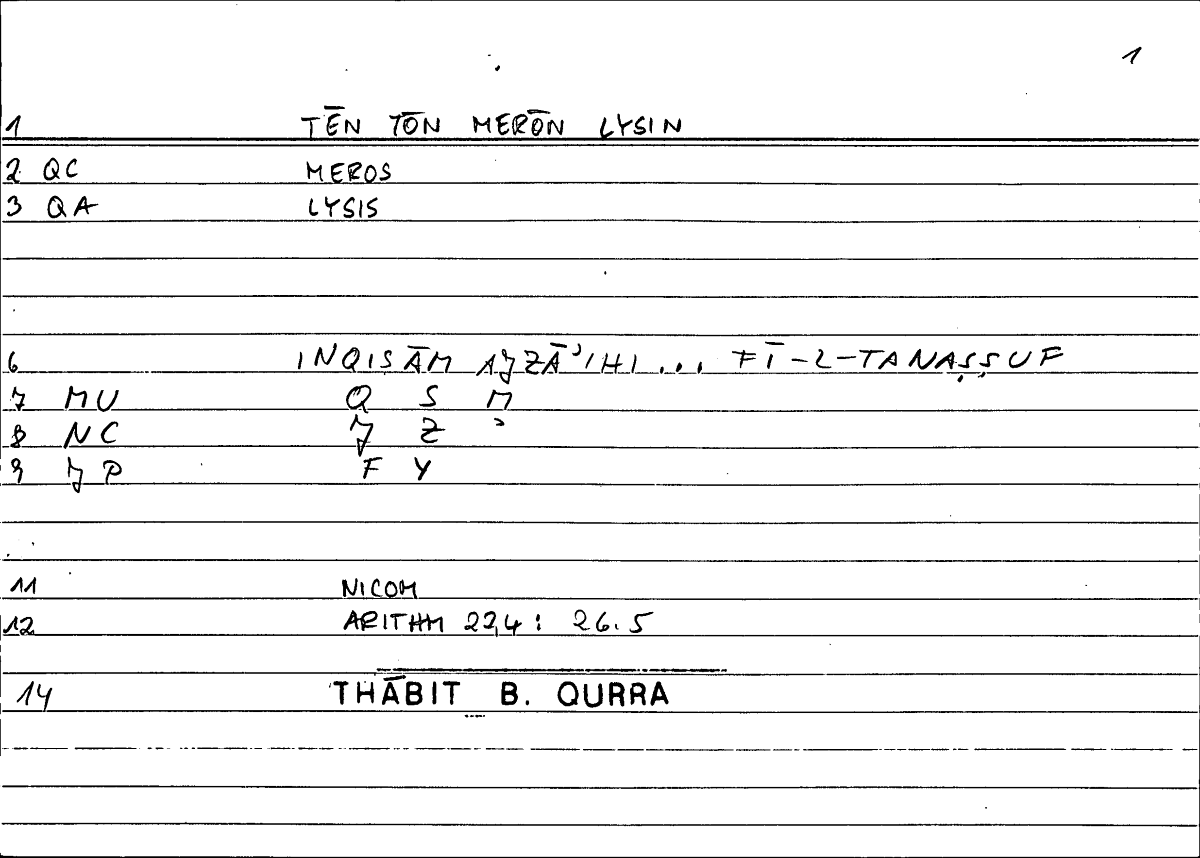 1
1 TĒN TŌN MERŌN LYSIN
2 QC MEROS
3 QA LYSIS
6 INQISĀM AJZĀʾIHI ... FĪ-L-TANAṢṢUF
7 MU Q S M
8 NC J Z ʾ
9 JP F Y
11 NICOM
12 ARITHM 22,4 : 26.5
14 THĀBIT B. QURRA